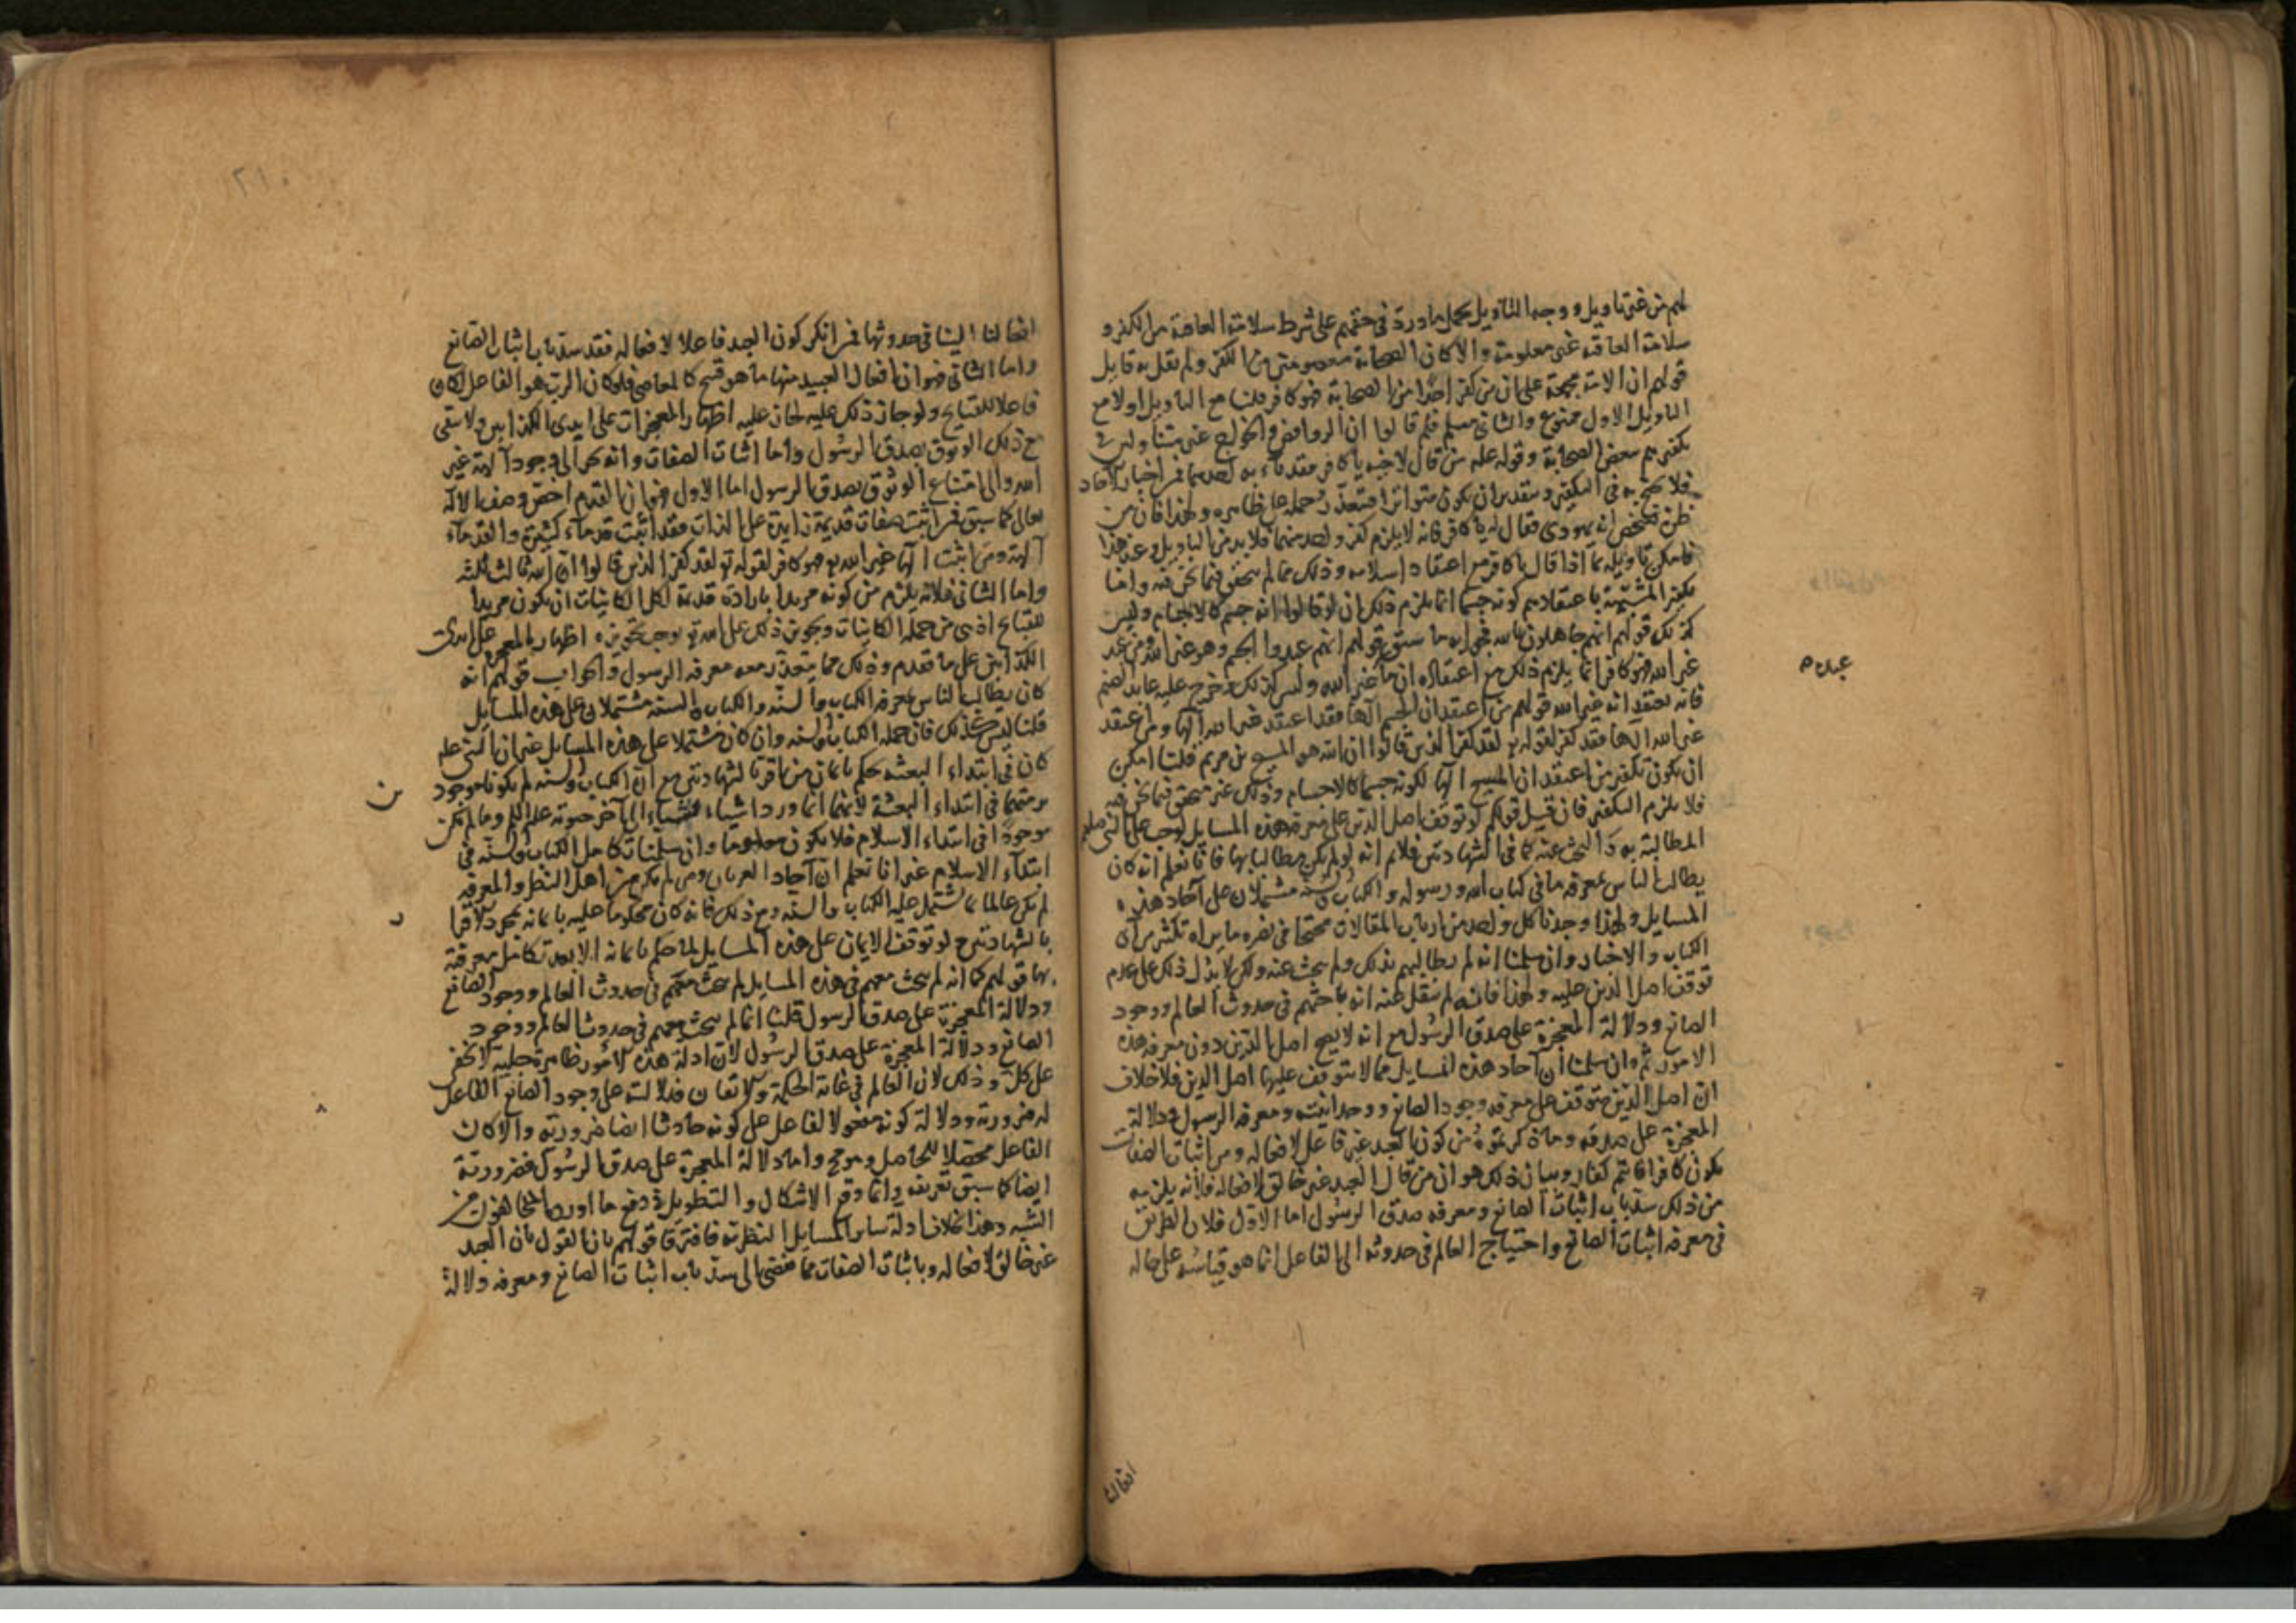 لهم من غير تاويل ووجه التاويل بحمل ما ورد في حقهم على شرط سلامة العاقبة من الكفر و
سلامة العاقبة غير معلومة والا كان الصحابة معصومين من الكفر ولم يقل به قايل
قولهم ان الامة مجمعة على ان من كفر احدا من الصحابة فهو كافر قلنا مع التاويل او لا مع
التاويل الاول ممنوع والثاني مسلم فلم قالوا ان الروافض والخوارج غير متأولين في
تكفيرهم بعض الصحابة وقوله عليه من قال لاخيه يا كافر فقد باء به احدهما فمن اخبار الآحاد
فلا يحتج به في التكفير وبتقدير ان يكون متواترا فمتعذر حمله على ظاهره ولهذا فان من
ظن بشخص انه يهودي فقال له يا كافر فانه لا يلزم كفر واحد منهما فلا بد من التاويل وعند هذا
فامكن تاويله بما اذا قال يا كافر مع اعتقاد اسلامه وذلك مما لم يتحقق فيما نحن فيه واما
تكفير المشبهة باعتقادهم كونه جسما انما يلزم ذلك ان لو قالوا انه جسم كالاجسام وليس
كذلك قولهم انهم جاهلون بالله فجوابه ما سبق قولهم انهم عبدوا الجسم وهو غير الله ومن عبد
غير الله فهو كافر انما يلزم ذلك مع اعتقاده ان ما غير الله وليس كذلك وخرج عليه عابد الصنم
فانه يعتقد انه غير الله قولهم من اعتقد ان الجسم آلها فقد اعتقد غير الله آلها ومن اعتقد
غير الله آلها فقد كفر لقوله تع لقد كفر الذين قالوا ان الله هو المسيح بن مريم قلنا امكن
ان يكون تكفير من اعتقد ان المسيح آلها لكونه جسما كالاجسام وذلك غير متحقق فيما نحن فيه
فلا يلزم التكفير فان قيل قولكم لو توقف اصل الدين على معرفة هذه المسايل لوجب على النبي صلعم
المطالبة به والبحث عنه كما في الشهادتين فلا نم انه لو لم يكن مطالبا بها فانا نعلم انه كان
يطالب الناس بمعرفة ما في كتاب الله ورسوله والكتاب والسنة مشتملان على آحاد هذه
المسايل ولهذا وجدنا كل واحد من ارباب المقالات محتجا في نصره ما يراه بكثير من آي
الكتاب والاخبار وان سلمنا انه لم يطالبهم بذلك ولم يبحث عنه ولكن لا يدل ذلك على عدم
توقف اصل الدين عليه ولهذا فانه لم ينقل عنه انه باحثهم في حدوث العالم ووجود
الصانع ودلالة المعجزة على صدق الرسول مع انه لا يصح اصل الدين دون معرفة هذه
الامور ثم وان سلمنا ان آحاد هذه المسايل مما لا يتوقف عليها اصل الدين فلا خلاف
ان اصل الدين يتوقف على معرفة وجود الصانع ووحدانيته ومعرفة الرسول ودلالة
المعجزة على صدقه وما ذكرتموه من كون العبد غير فاعل لافعاله ومن اثبات الصفات
يكون كافرا فانتم كفار وبيان ذلك هو ان من قال العبد غير خالق لافعاله فلانه يلزمه
من ذلك سد باب اثبات الصانع ومعرفة صدق الرسول اما الاول فلان الطريق
في معرفة اثبات الصانع واحتياج العالم في حدوثه الى الفاعل انما هو قياسه على حاله
عبده م
افعالنا
٢١٠
افعالنا الينا في حدوثها فمن انكر كون العبد فاعلا لافعاله فقد سد باب اثبات الصانع
واما الثاني فهو ان افعال العبيد منها ما هو قبيح كالمعاصي فلو كان الرب هو الفاعل لكان
فاعلا للقبايح ولو جاز ذلك عليه لجاز عليه اظهار المعجزات على ايدي الكذابين ولا يبقى
مع ذلك الوثوق بصدق الرسول واما اثبات الصفات وانه يجر الى وجود آلهة غير
الله والى امتناع الوثوق بصدق الرسول اما الاول فهو ان القدم اخص وصف الاله
تعالى كما سبق فمن اثبت صفات قديمة زايدة على الذات فقد اثبت قدماء كثيرة والقدماء
آلهة ومن اثبت آلها غير الله تع فهو كافر لقوله تع لقد كفر الذين قالوا ان الله ثالث ثلثة
واما الثاني فلانه يلزم من كونه مريدا بارادة قديمة لكل الكاينات ان يكون مريدا
للقبايح اذ هي من جملة الكاينات وتجويز ذلك على الله تع يوجب تجويز اظهار المعجزة على ايدي
الكذابين على ما تقدم وذلك مما يتعذر معه معرفة الرسول والجواب قولهم انه
كان يطالب الناس بمعرفة الكتاب والسنة والكتاب والسنة مشتملان على هذه المسايل
قلنا ليس كذلك فان جملة الكتاب والسنة وان كان مشتملا على هذه المسايل غير ان النبي عليه
كان في ابتداء البعثة حكم بايمان من اقر بالشهادتين مع ان الكتاب والسنة لم يكونا موجود
برمتهما في ابتداء البعثة لانهما انما وردا شياء فشياء الى آخر حيوته عليه السلم وما لم يكن
موجودا في ابتداء الاسلام فلا يكون معلوما وان سلمنا تكامل الكتاب والسنة في
ابتداء الاسلام غير انا نعلم ان آحاد العربان ومن لم يكن من اهل النظر والمعرفة
لم يكن عالما بما يشتمل عليه الكتاب والسنة ومع ذلك فانه كان محكوما عليه بايمانه بمجرد الاقرا
بالشهادتين ح لو توقف الايمان على هذه المسايل لما حكم بايمانه الا بعد تكامل معرفته
بها قولهم كما انه لم يبحث معهم في هذه المسايل لم يبحث معهم في حدوث العالم ووجود الصانع
ودلالة المعجزة على صدق الرسول قلنا انما لم يبحث معهم في حدوث العالم ووجود
الصانع ودلالة المعجزة على صدق الرسول لان ادلة هذه الامور ظاهرة جلية لا تخفى
على كل وذلك لان العالم في غاية الحكمة والاتقان فدلالته على وجود الصانع الفاعل
له ضرورية ودلالة كونه مفعولا لفاعل على كونه حادثا ايضا ضرورية والا كان
الفاعل محصلا للحاصل وهو مح واما دلالة المعجزة على صدق الرسول فضرورية
ايضا كما سبق تعريفه وانما وقع الاشكال والتطويل في دفع ما اورده المخالفون من
الشبه وهذا بخلاف ادلة ساير المسايل النظرية فافترقا قولهم بان القول بان العبد
غير خالق لافعاله وباثبات الصفات مما يفضي الى سد باب اثبات الصانع ومعرفة دلالة
ين
ر